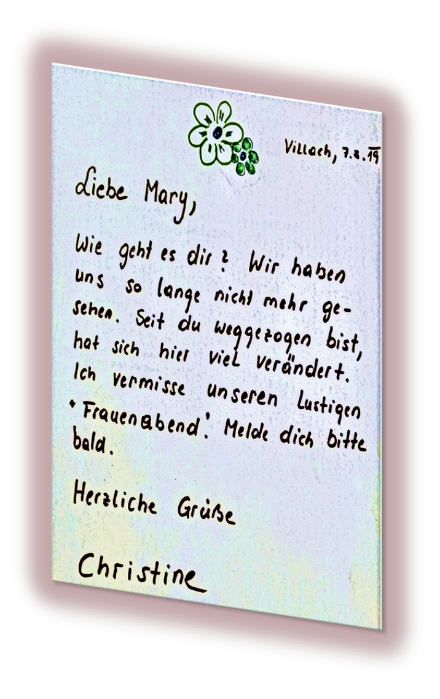 Villach, 7.8.19
Liebe Mary,
Wie geht es dir? Wir haben
uns so lange nicht mehr ge-
sehen. Seit du weggezogen bist,
hat sich hier viel verändert.
Ich vermisse unseren Lustigen
"Frauenabend". Melde dich bitte
bald.
Herzliche Grüße
Christine